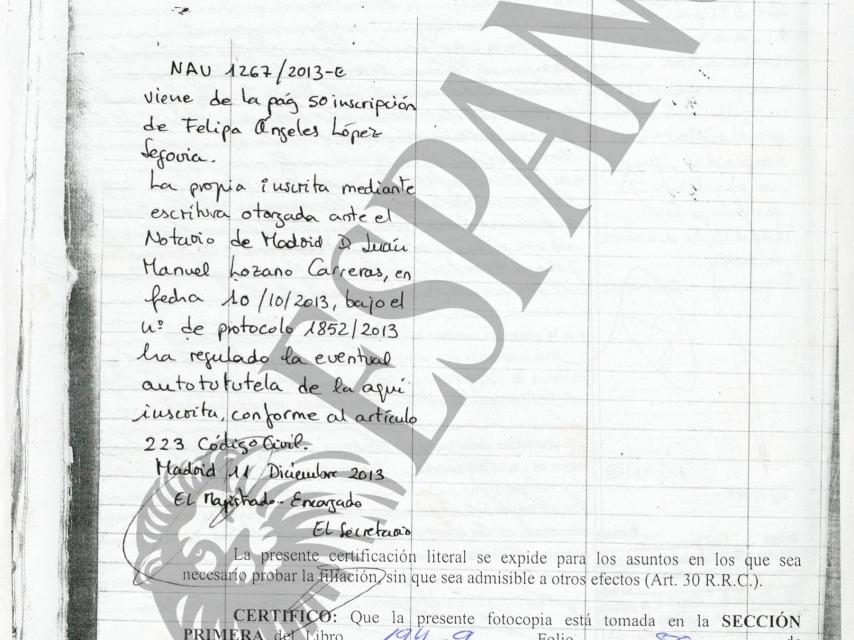 NAU 1267/2013-E
viene de la pág 50 inscripción
de Felipa Angeles López
Segovia.
La propia inscrita mediante
escritura otorgada ante el
Notario de Madrid D. Juan
Manuel Lozano Carreras, en
fecha 10/10/2013, bajo el
nº de protocolo 1852/2013
ha regulado la eventual
autotutela de la aquí
inscrita, conforme al artículo
223 Código Civil.
Madrid 11 Diciembre 2013
El Magistrado-Encargado
El Secretario
ESPAÑ
La presente certificación literal se expide para los asuntos en los que sea
necesario probar la filiación, sin que sea admisible a otros efectos (Art. 30 R.R.C.).
CERTIFICO: Que la presente fotocopia está tomada en la SECCIÓN
PRIMERA del Libro Folio de